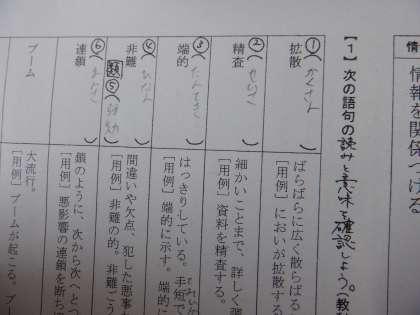 情報を関係づける
【1】次の語句の読みと意味を確認しよう。（教
拡散
①（かくさん）
ばらばらに広く散らばる
［用例］においが拡散する
精査
②（せいさ）
細かいことまで、詳しく調
［用例］資料を精査する。
端的
③（たんてき）
はっきりしている。手短で
［用例］端的に示す。端的に
非難
④（ひなん）
間違いや欠点、犯した悪事
［用例］非難の的。非難ごう
類⑤（
連鎖
⑥（
鎖のように、次から次へとつ
［用例］悪影響の連鎖を断ち
ブーム
大流行。
［用例］ブームが起こる。ブー